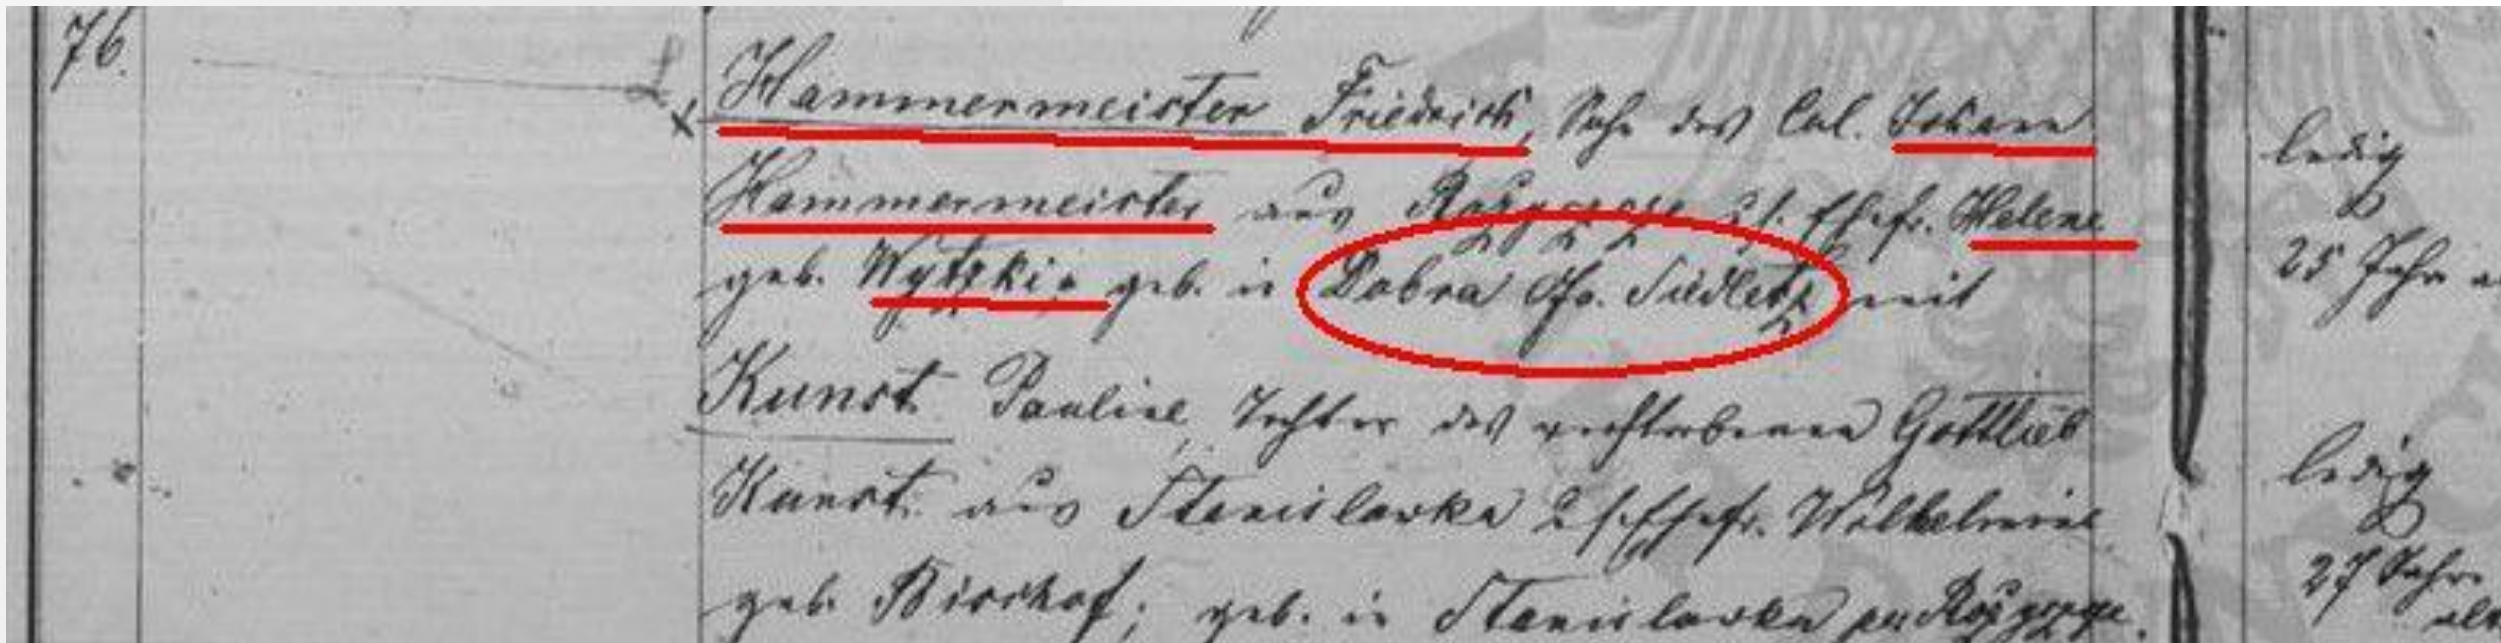 76.
Hammermeister Friedrich, Sohn des Col. Johann
Hammermeister aus Rożyszcze u. s. Ehefr. Helene
geb. geb. in Dobra Go. Siedletz mit
Kunst Pauline, Tochter des verstorbenen Gottlieb
Kunst aus Stanislavka u. s. Ehefr. Wilhelmine
geb. Bischof; geb. in Stanislavka
ledig
25 Jahr
ledig
27 Jahr
alt